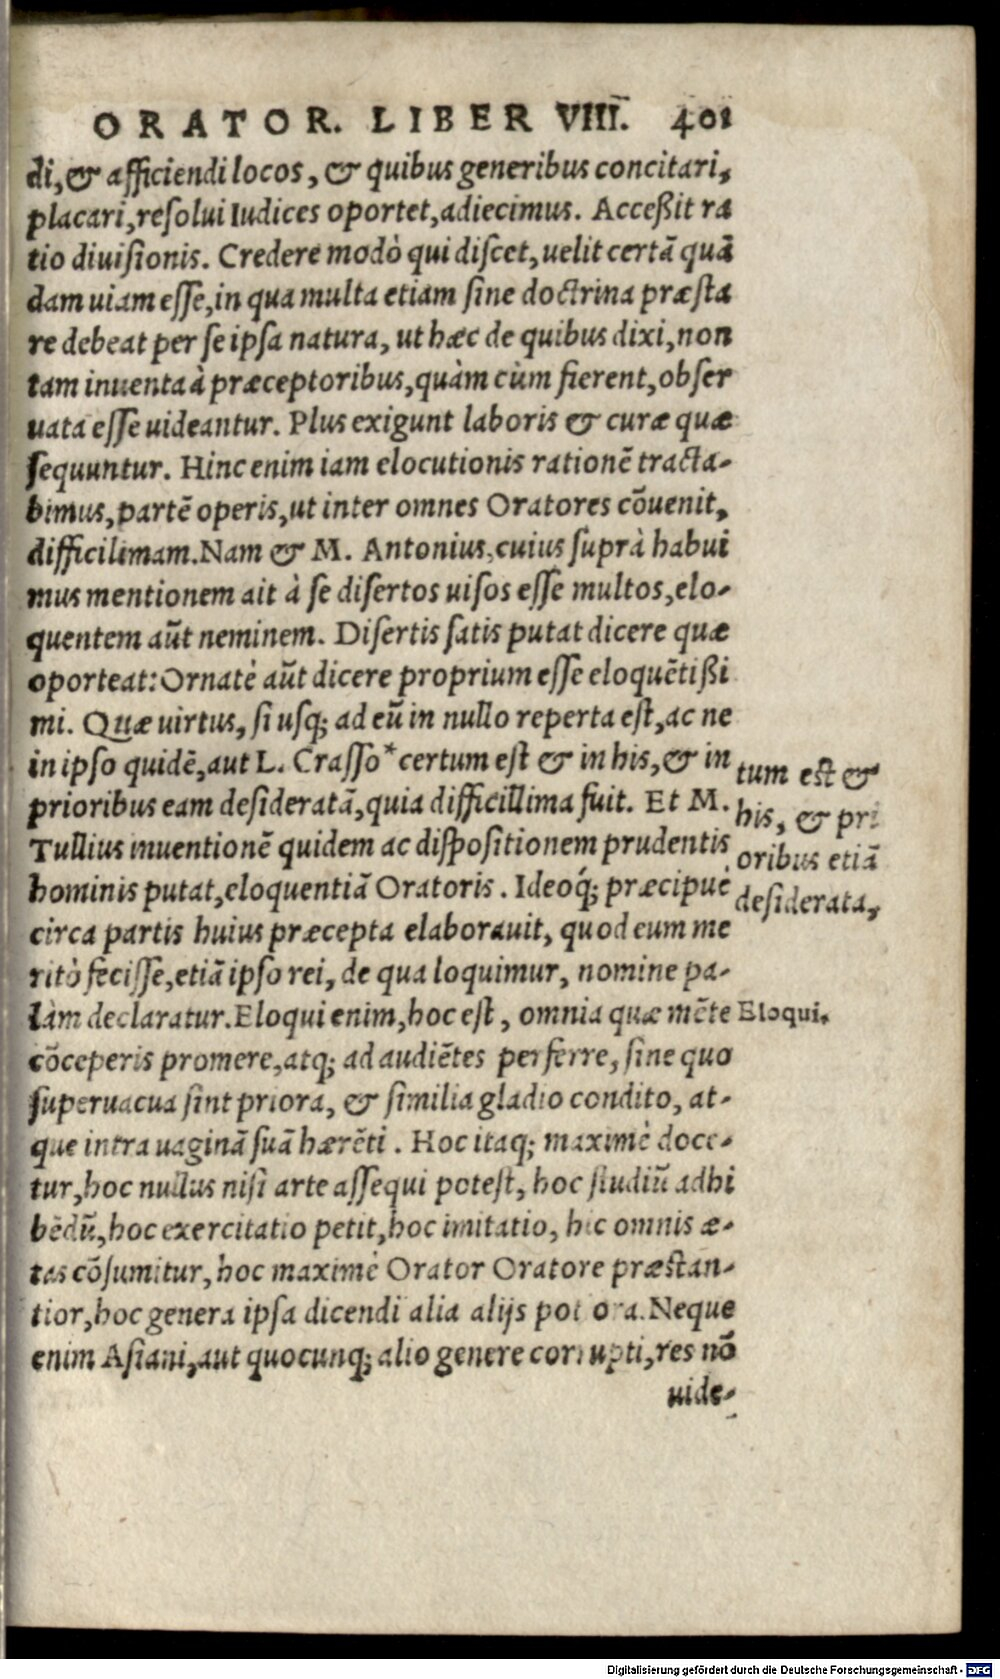 ORATOR. LIBER VIII. 401
di, & afficiendi locos, & quibus generibus concitari,
placari, resolui Iudices oportet, adiecimus. Acceßit ra
tio diuisionis. Credere modò qui discet, uelit certā quā
dam uiam esse, in qua multa etiam sine doctrina præsta
re debeat per se ipsa natura, ut hæc de quibus dixi, non
tam inuenta à præceptoribus, quàm cùm fierent, obser
uata esse uideantur. Plus exigunt laboris & curæ quæ
sequuntur. Hinc enim iam elocutionis rationē tracta-
bimus, partē operis, ut inter omnes Oratores cōuenit,
difficilimam. Nam & M. Antonius, cuius suprà habui
mus mentionem ait à se disertos uisos esse multos, elo-
quentem aūt neminem. Disertis satis putat dicere quæ
oporteat: Ornatè aūt dicere proprium esse eloquētißi
mi. Quæ uirtus, si usq; ad eū in nullo reperta est, ac ne
in ipso quidē, aut L. Crasso * certum est & in his, & in
prioribus eam desideratā, quia difficillima fuit. Et M.
Tullius inuentionē quidem ac dispositionem prudentis
hominis putat, eloquentiā Oratoris. Ideoq́; præcipuè
circa partis huius præcepta elaborauit, quod eum me
ritò fecisse, etiā ipso rei, de qua loquimur, nomine pa-
làm declaratur. Eloqui enim, hoc est, omnia quæ mēte
cōceperis promere, atq; ad audiētes perferre, sine quo
superuacua sint priora, & similia gladio condito, at-
que intra uaginā suā hærēti. Hoc itaq; maximè doce-
tur, hoc nullus nisi arte assequi potest, hoc studiū adhi
bēdū, hoc exercitatio petit, hoc imitatio, hic omnis æ-
tas cōsumitur, hoc maximè Orator Oratore præstan-
tior, hoc genera ipsa dicendi alia alijs potiora. Neque
enim Asiani, aut quocunq; alio genere corrupti, res nō
uide-
tum est &
his, & pri
oribus etiā
desiderata,
Eloqui.
Digitalisierung gefördert durch die Deutsche Forschungsgemeinschaft - DFG